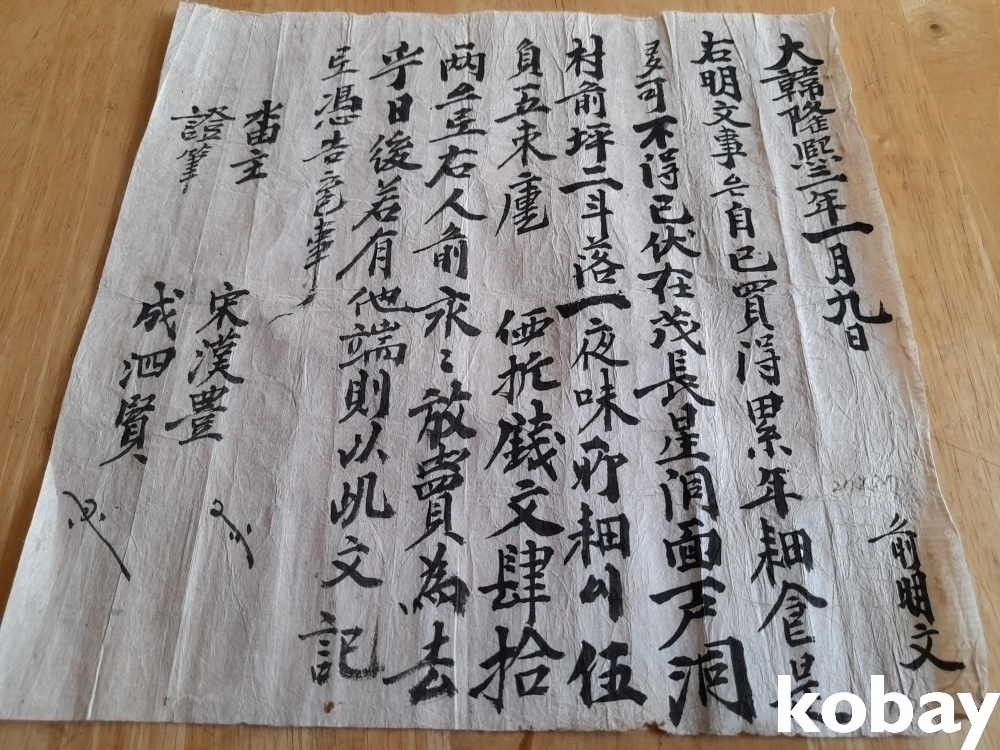 大韓隆熙三年一月九日 前明文
右明文事段自己買得累年耕食是
多可不得已伏在茂長星洞面戶洞
村前坪二斗落一夜味所耕川伍
負五束廤價折錢文肆拾
兩是遣右人前永々放賣為去
乎日後若有他端則以此文記
憑告官事
畓主 宋漢豊
證筆 成泗賢
kobay